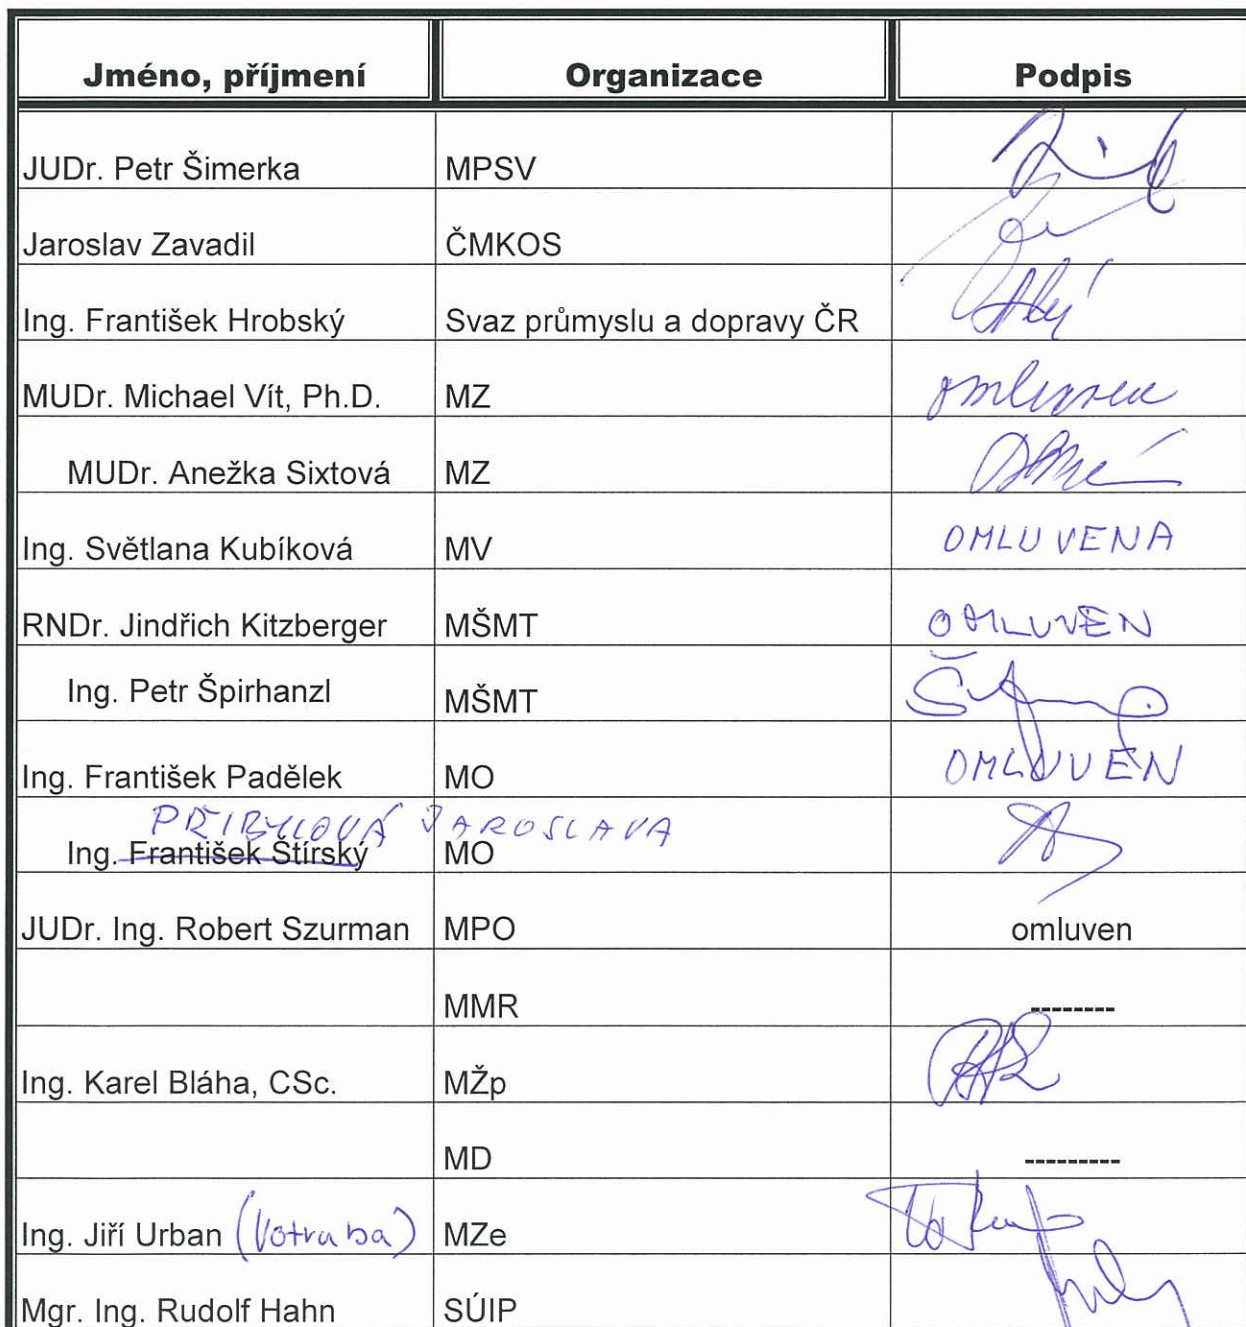 Jméno, příjmení Organizace Podpis
JUDr. Petr Šimerka MPSV
Jaroslav Zavadil ČMKOS
Ing. František Hrobský Svaz průmyslu a dopravy ČR
MUDr. Michael Vít, Ph.D. MZ omluven
MUDr. Anežka Sixtová MZ
Ing. Světlana Kubíková MV OMLUVENA
RNDr. Jindřich Kitzberger MŠMT OMLUVEN
Ing. Petr Špirhanzl MŠMT
Ing. František Padělek MO OMLUVEN
PŘIBYLOVÁ JAROSLAVA
Ing. František Štírský MO
JUDr. Ing. Robert Szurman MPO omluven
MMR --------
Ing. Karel Bláha, CSc. MŽp
MD ---------
Ing. Jiří Urban (Votruba) MZe
Mgr. Ing. Rudolf Hahn SÚIP